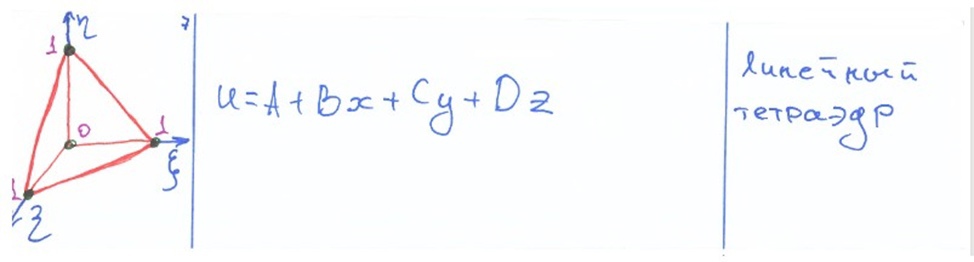 η
1
0
1
ξ
1
ζ
u=A+Bx+Cy+Dz
линейный
тетраэдр